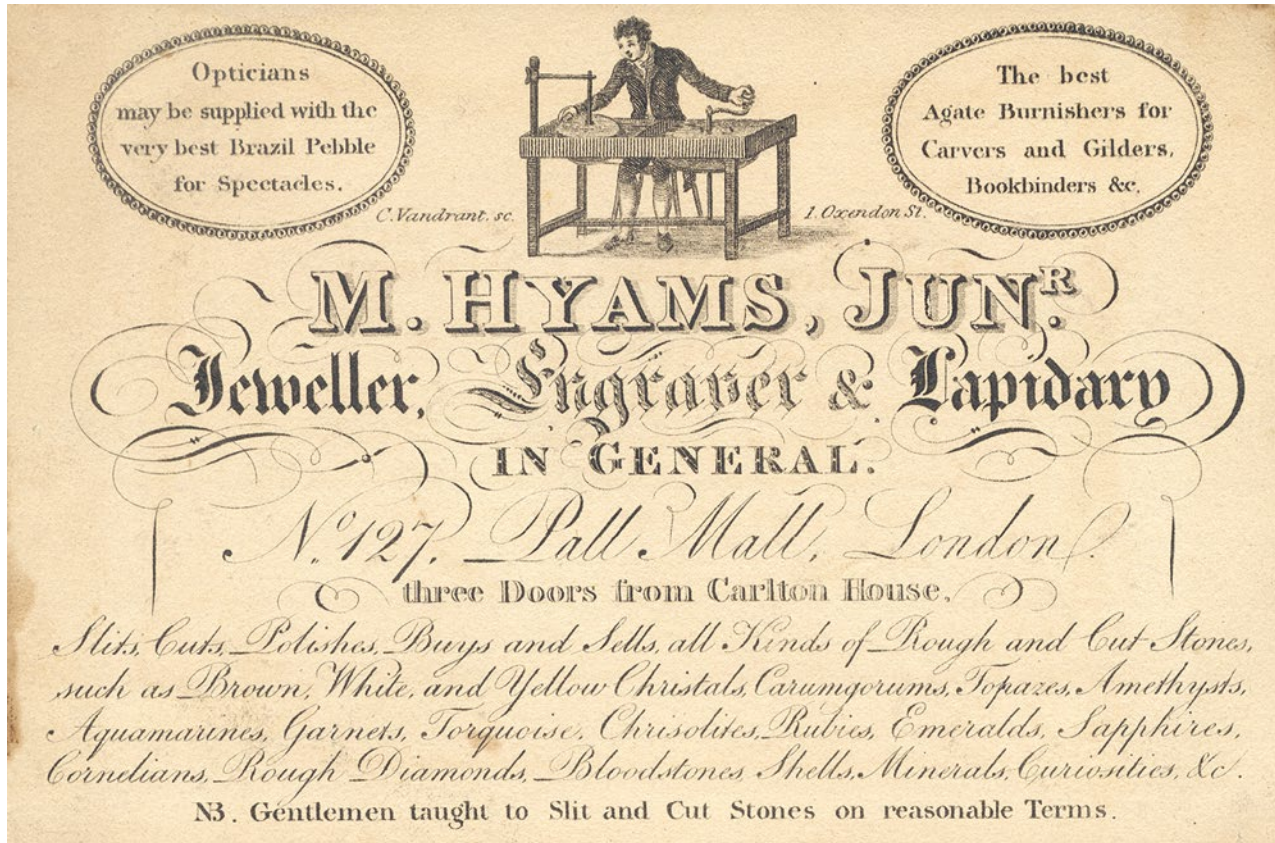 Opticians
may be supplied with the
very best Brazil Pebble
for Spectacles.
The best
Agate Burnishers for
Carvers and Gilders,
Bookbinders &c,
C. Vandrant. sc. 1. Oxendon St.
M. HYAMS, JUNR.
Jeweller, Engraver & Lapidary
IN GENERAL.
No. 127, Pall Mall, London.
three Doors from Carlton House,
Slits, Cuts, Polishes, Buys and Sells, all Kinds of Rough and Cut Stones,
such as Brown, White, and Yellow Christals, Carumgorums, Topazes, Amethysts,
Aquamarines, Garnets, Torquoise, Chrisolites, Rubies, Emeralds, Sapphires,
Cornelians, Rough Diamonds, Bloodstones, Shells, Minerals, Curiosities, &c.
NB. Gentlemen taught to Slit and Cut Stones on reasonable Terms.